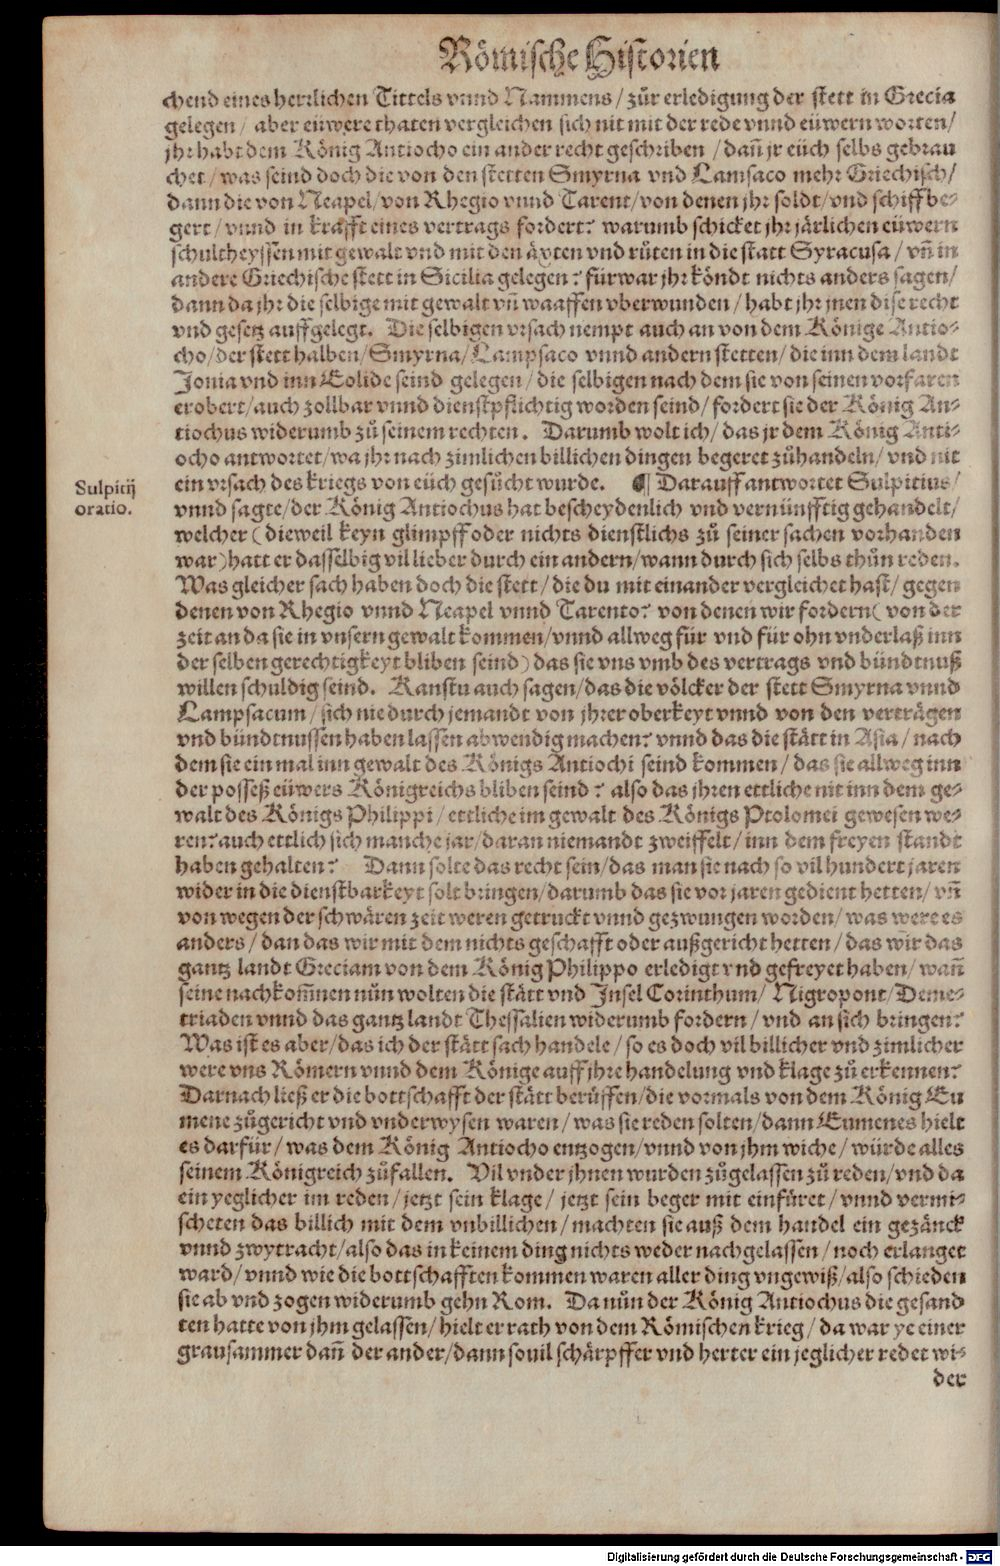 Römische Historien
chend eines herrlichen Tittels vnnd Nammens / zůr erledigung der stett in Grecia
gelegen / aber eüwere thaten vergleichen sich nit mit der rede vnnd eüwern worten /
jhr habt dem König Antiocho ein ander recht geschriben / dañ jr eüch selbs gebrau
chet / was seind doch die von den stetten Smyrna vnd Lamsaco mehr Griechisch /
dann die von Neapel / von Rhegio vnnd Tarent / von denen jhr soldt / vnd schiff be-
gert / vnnd in krafft eines vertrags fordert? warumb schicket jhr järlichen eüwern
schultheyssen mit gewalt vnd mit den äxten vnd růten in die statt Syracusa / vñ in
andere Griechische stett in Sicilia gelegen? fürwar jhr köndt nichts anders sagen /
dann da jhr die selbige mit gewalt vñ waaffen vberwunden / habt jhr jnen dise recht
vnd gesetz auffgelegt. Die selbigen vrsach nempt auch an von dem Könige Antio-
cho / der stett halben / Smyrna / Lampsaco vnnd andern stetten / die inn dem landt
Jonia vnd inn Eolide seind gelegen / die selbigen nach dem sie von seinen vorfaren
erobert / auch zollbar vnnd dienstpflichtig worden seind / fordert sie der König An-
tiochus widerumb zů seinem rechten. Darumb wolt ich / das jr dem König Anti-
ocho antwortet / wa jhr nach zimlichen billichen dingen begeret zůhandeln / vnd nit
ein vrsach des kriegs von eüch gesůcht wurde. ¶ Darauff antwortet Sulpitius /
Sulpitij
oratio.
vnnd sagte / der König Antiochus hat bescheydenlich vnd vernünfftig gehandelt /
welcher ( dieweil keyn glimpff oder nichts dienstlichs zů seiner sachen vorhanden
war ) hatt er dasselbig vil lieber durch ein andern / wann durch sich selbs thůn reden.
Was gleicher sach haben doch die stett / die du mit einander vergleichet hast / gegen
denen von Rhegio vnnd Neapel vnnd Tarento? von denen wir fordern ( von der
zeit an da sie in vnsern gewalt kommen / vnnd allweg für vnd für ohn vnderlaß inn
der selben gerechtigkeyt bliben seind ) das sie vns vmb des vertrags vnd bündtnuß
willen schuldig seind. Kanstu auch sagen / das die völcker der stett Smyrna vnnd
Lampsacum / sich nie durch jemandt von jhrer oberkeyt vnnd von den verträgen
vnd bündtnussen haben lassen abwendig machen? vnnd das die stätt in Asia / nach
dem sie ein mal inn gewalt des Königs Antiochi seind kommen / das sie allweg inn
der posseß eüwers Königreichs bliben seind? also das jhren ettliche nit inn dem ge-
walt des Königs Philippi / ettliche im gewalt des Königs Ptolomei gewesen we-
ren? auch ettlich sich manche jar / daran niemandt zweiffelt / inn dem freyen standt
haben gehalten? Dann solte das recht sein / das man sie nach so vil hundert jaren
wider in die dienstbarkeyt solt bringen / darumb das sie vor jaren gedient hetten / vñ
von wegen der schwären zeit weren getruckt vnnd gezwungen worden / was were es
anders / dan das wir mit dem nichts geschafft oder außgericht hetten / das wir das
gantz landt Greciam von dem König Philippo erledigt vnd gefreyet haben / wañ
seine nachkom̃nen nůn wolten die stätt vnd Insel Corinthum / Nigropont / Deme-
triaden vnnd das gantz landt Thessalien widerumb fordern / vnd an sich bringen?
Was ist es aber / das ich der stätt sach handele / so es doch vil billicher vnd zimlicher
were vns Römern vnnd dem Könige auff jhre handelung vnd klage zů erkennen?
Darnach ließ er die bottschafft der stätt berůffen / die vormals von dem König Eu
mene zůgericht vnd vnderwysen waren / was sie reden solten / dann Eumenes hielt
es darfür / was dem König Antiocho entzogen / vnnd von jhm wiche / würde alles
seinem Königreich zůfallen. Vil vnder jhnen wurden zůgelassen zů reden / vnd da
ein yeglicher im reden / jetzt sein klage / jetzt sein beger mit einfüret / vnnd vermi-
scheten das billich mit dem vnbillichen / machten sie auß dem handel ein gezänck
vnnd zwytracht / also das in keinem ding nichts weder nachgelassen / noch erlanget
ward / vnnd wie die bottschafften kommen waren aller ding vngewiß / also schieden
sie ab vnd zogen widerumb gehn Rom. Da nůn der König Antiochus die gesand
ten hatte von jhm gelassen / hielt er rath von dem Römischen krieg / da war ye einer
grausammer dañ der ander / dann souil schärpffer vnd herter ein jeglicher redet wi-
der
Digitalisierung gefördert durch die Deutsche Forschungsgemeinschaft - DFG